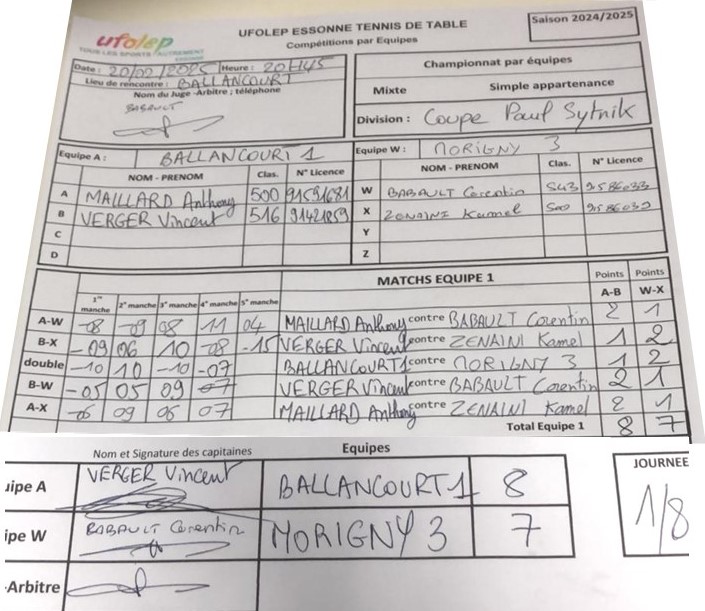 ufolep
TOUS LES SPORTS AUTREMENT
ESSONNE
UFOLEP ESSONNE TENNIS DE TABLE
Compétitions par Equipes
Saison 2024/2025
Date : 20/02/2025 Heure : 20H45
Lieu de rencontre : BALLANCOURT
Nom du Juge-Arbitre ; téléphone
BABAULT
Championnat par équipes
Mixte Simple appartenance
Division : Coupe Paul Sytnik
Equipe A : BALLANCOURT 1
Equipe W : MORIGNY 3
NOM - PRENOM Clas. N° Licence
NOM - PRENOM Clas. N° Licence
A MAILLARD Anthony 500 91591681
W BABAULT Corentin 543 9586033
B VERGER Vincent 516 91421859
X ZENAINI Kamel 500 9586032
C
Y
D
Z
1re manche 2e manche 3e manche 4e manche 5e manche MATCHS EQUIPE 1 Points A-B Points W-X
A-W -08 -09 08 11 04 MAILLARD Anthony contre BABAULT Corentin 2 1
B-X -09 06 10 -08 -15 VERGER Vincent contre ZENAINI Kamel 1 2
double -10 10 -10 -07 BALLANCOURT 1 contre MORIGNY 3 1 2
B-W -05 05 09 07 VERGER Vincent contre BABAULT Corentin 2 1
A-X -06 09 06 07 MAILLARD Anthony contre ZENAINI Kamel 2 1
Total Equipe 1 8 7
Nom et Signature des capitaines Equipes
uipe A VERGER Vincent BALLANCOURT 1 8
ipe W BABAULT Corentin MORIGNY 3 7
-Arbitre
JOURNEE
1/8